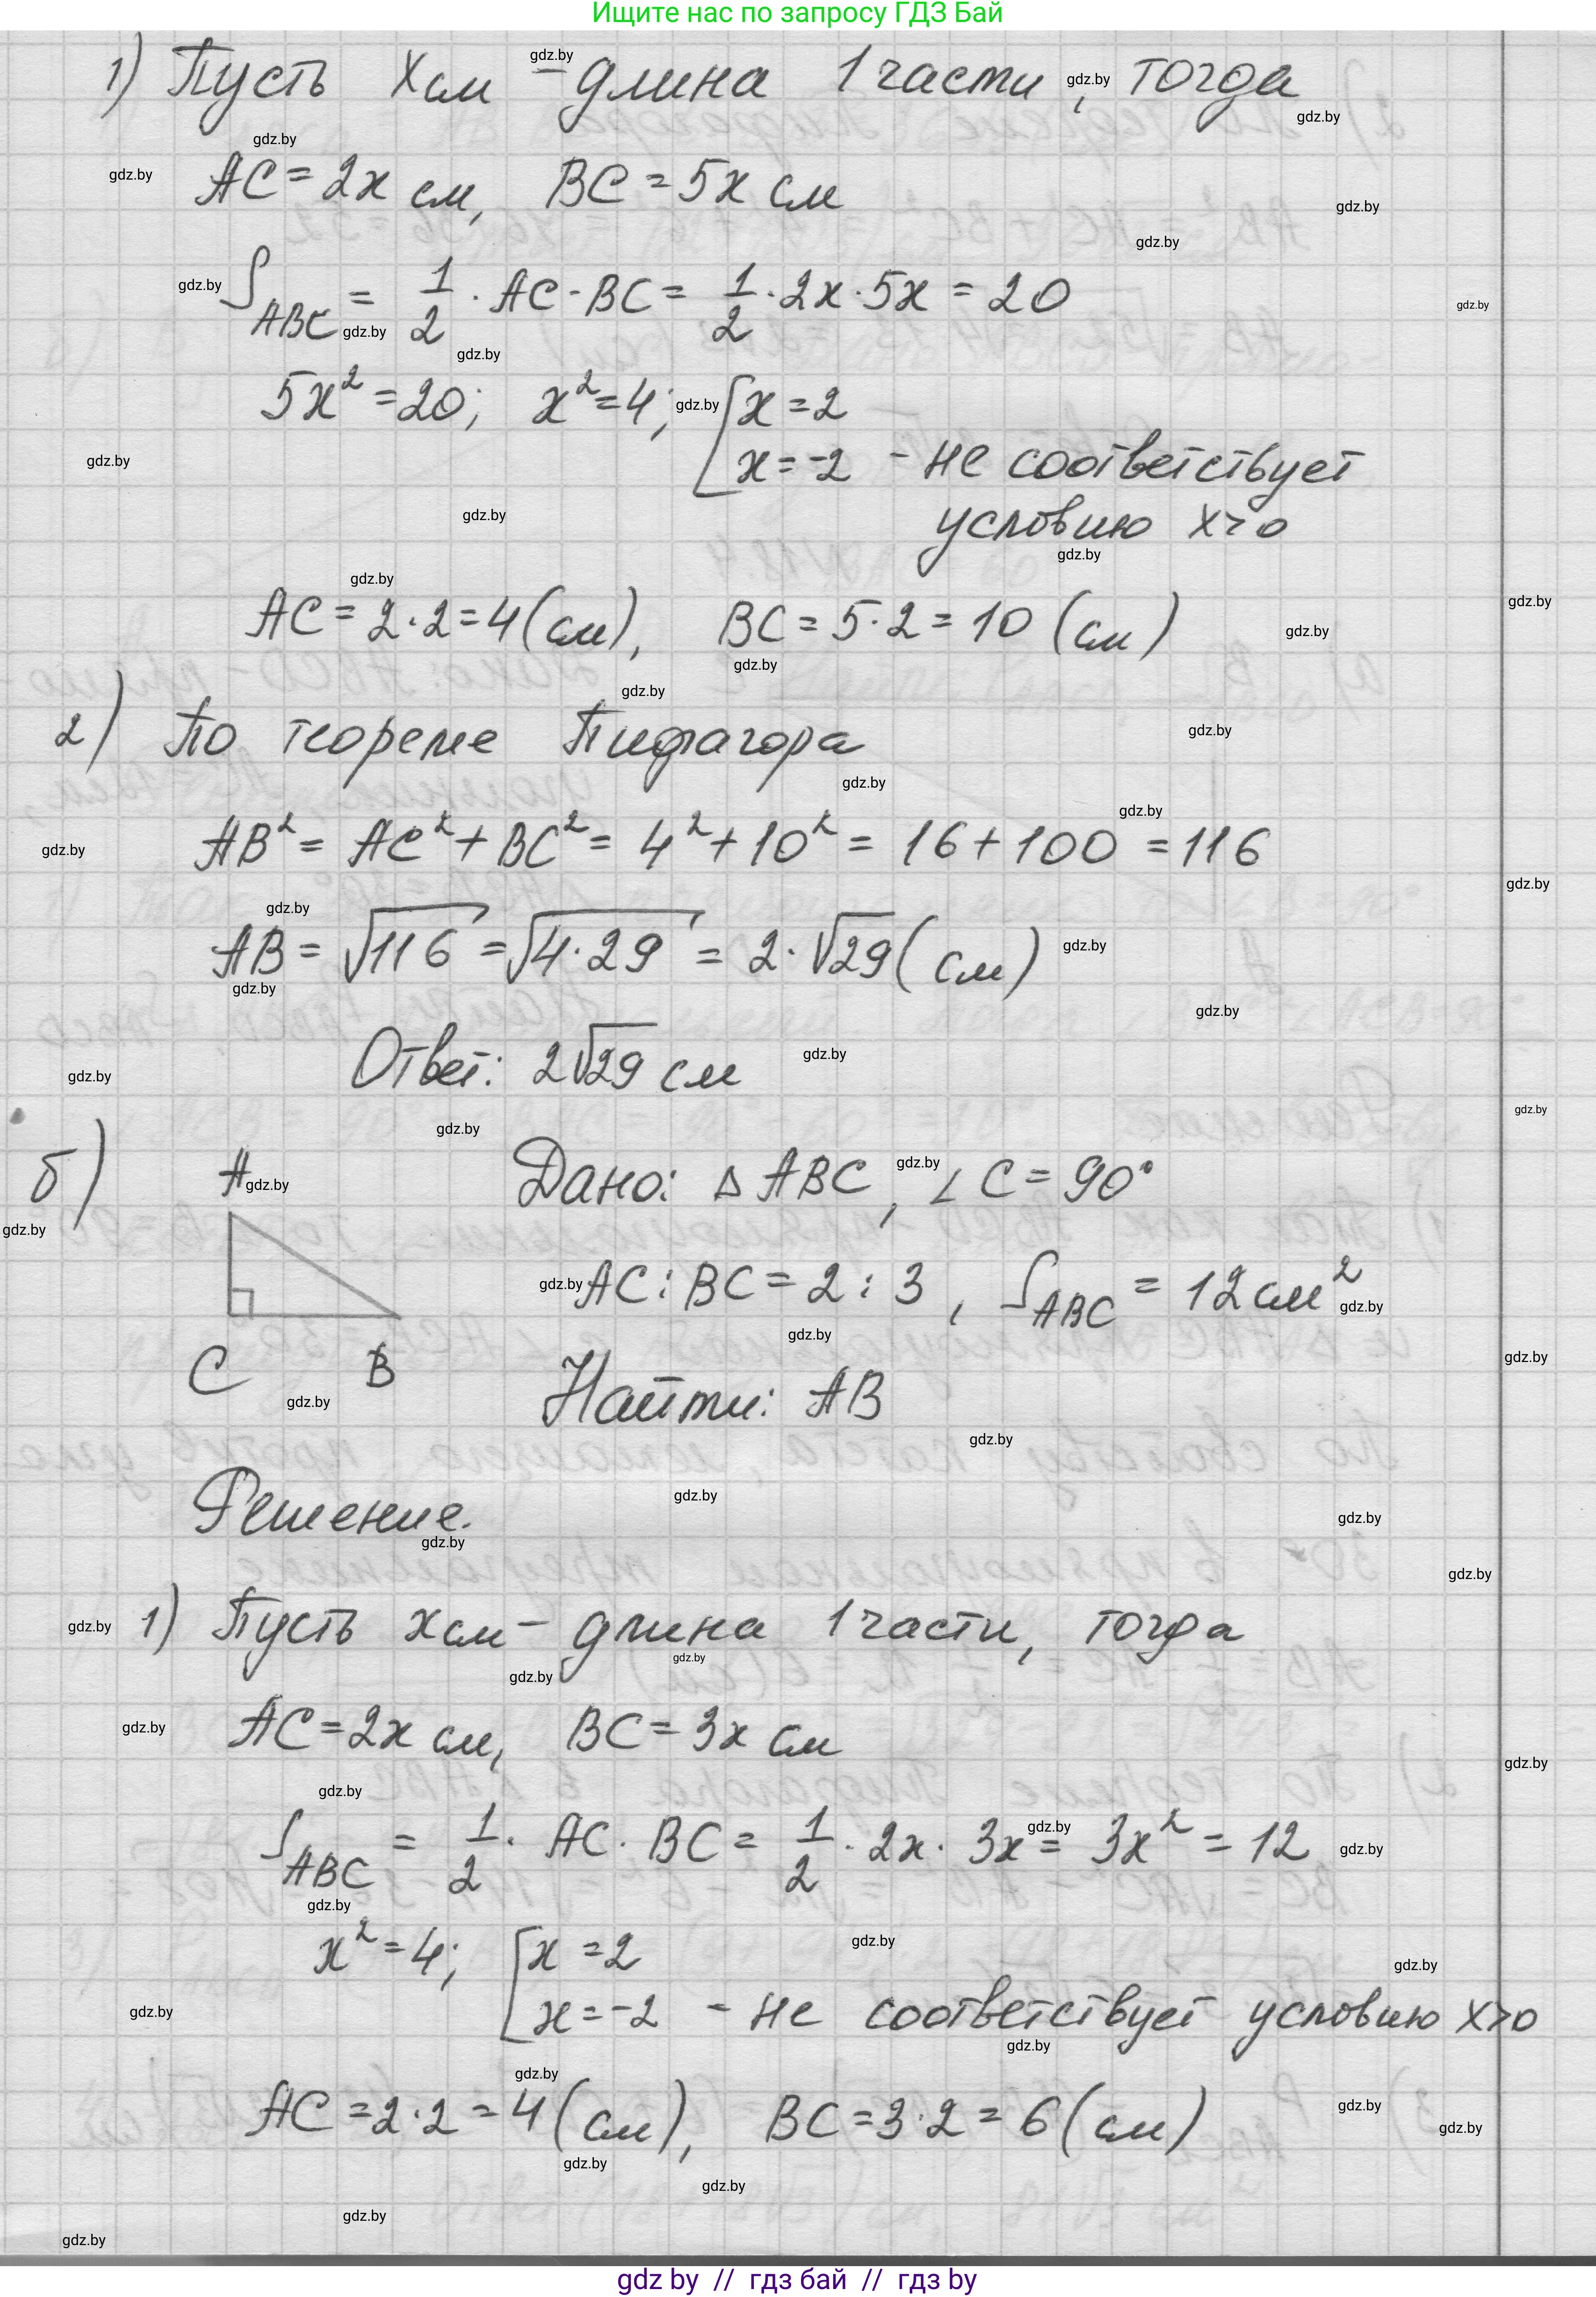 Ищите нас по запросу ГДЗ Бай
1) Пусть x см – длина 1 части, тогда
AC = 2x см, BC = 5x см
S_ABC = 1/2 · AC · BC = 1/2 · 2x · 5x = 20
5x² = 20; x² = 4; [x = 2
x = -2 - не соответствует
условию x>0
AC = 2·2 = 4 (см), BC = 5·2 = 10 (см)
2) По теореме Пифагора
AB² = AC² + BC² = 4² + 10² = 16 + 100 = 116
AB = √116 = √4·29 = 2·√29 (см)
Ответ: 2√29 см
б) A Дано: △ABC, ∠C = 90°
AC : BC = 2 : 3, S_ABC = 12 см²
C B Найти: AB
Решение.
1) Пусть x см – длина 1 части, тогда
AC = 2x см, BC = 3x см
S_ABC = 1/2 · AC · BC = 1/2 · 2x · 3x = 3x² = 12
x² = 4; [x = 2
x = -2 - не соответствует условию x>0
AC = 2·2 = 4 (см), BC = 3·2 = 6 (см)
gdz by // гдз бай // гдз by